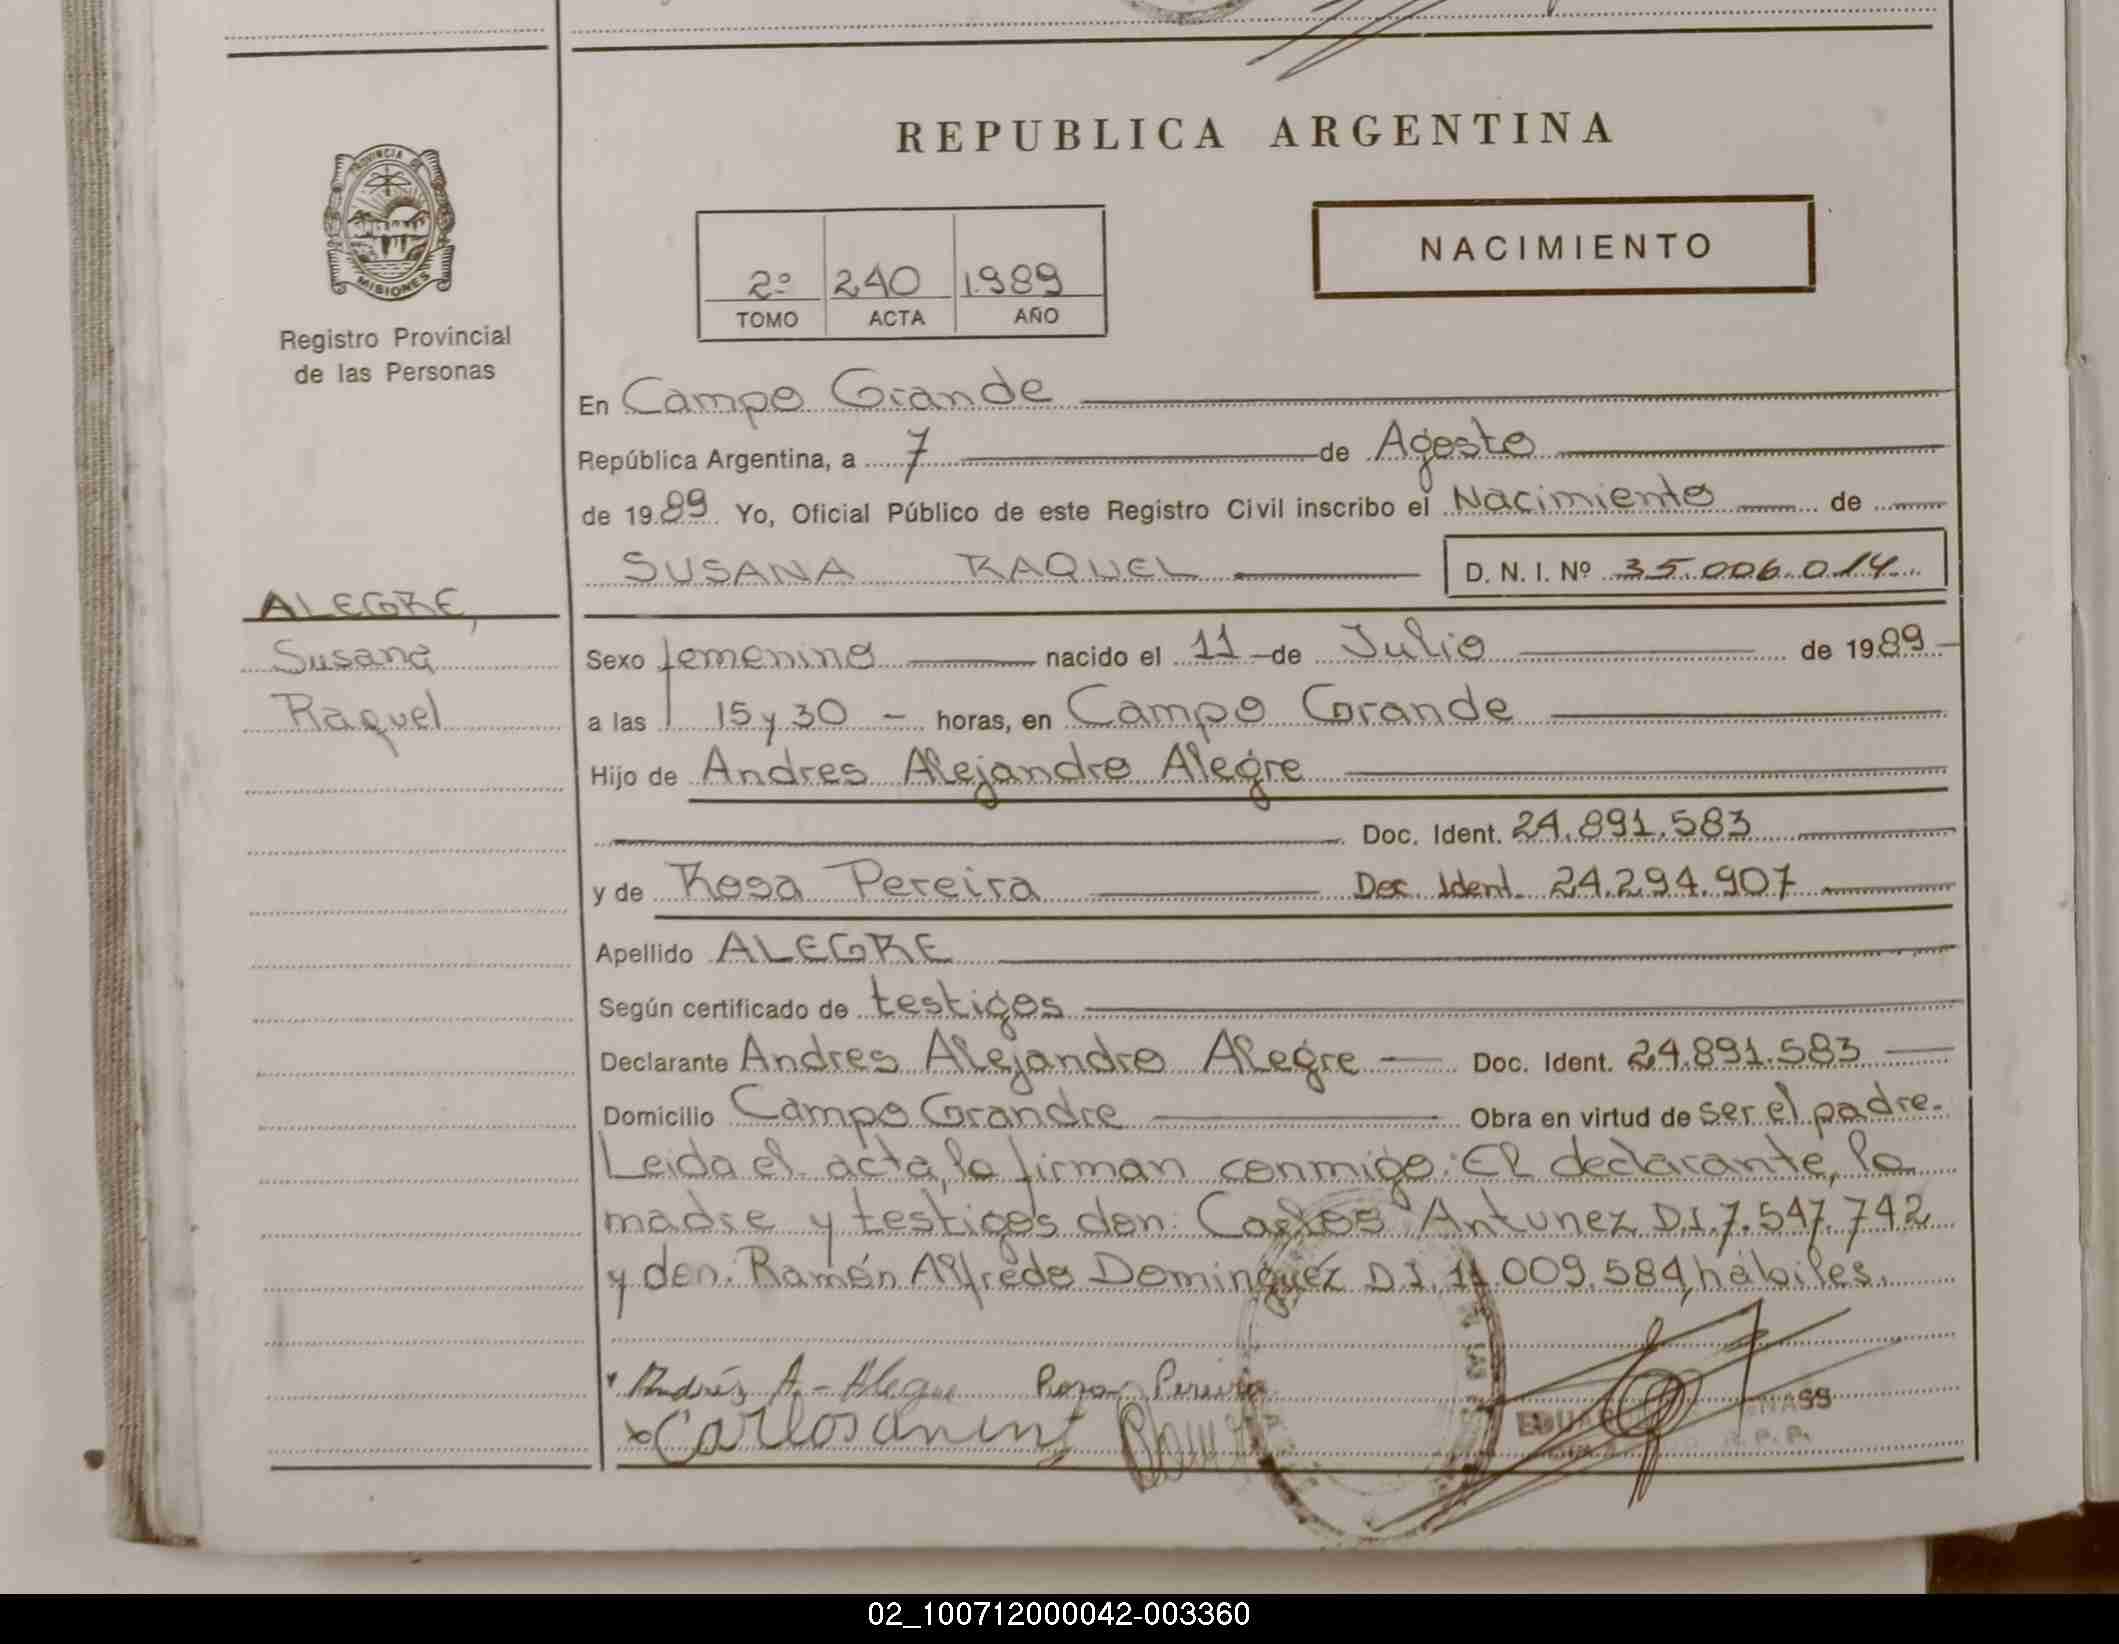 REPUBLICA ARGENTINA
PROVINCIA DE MISIONES
Registro Provincial
de las Personas
NACIMIENTO
2º 240 1989
TOMO ACTA AÑO
En Campo Grande
República Argentina, a 7 de Agosto
de 1989 Yo, Oficial Público de este Registro Civil inscribo el Nacimiento de
SUSANA RAQUEL D. N. I. Nº 35.006.014
ALEGRE,
Susana
Raquel
Sexo femenino nacido el 11 de Julio de 1989
a las 15 y 30 horas, en Campo Grande
Hijo de Andres Alejandro Alegre
Doc. Ident. 24.891.583
y de Rosa Pereira Doc. Ident. 24.294.907
Apellido ALEGRE
Según certificado de testigos
Declarante Andres Alejandro Alegre Doc. Ident. 24.891.583
Domicilio Campo Grandre Obra en virtud de ser el padre.
Leida el acta, la firman conmigo: El declarante, la
madre y testigos don: Carlos Antunez D.I. 7.547.742
y don. Ramón Alfredo Dominguez D.I. 11.009.584, hábiles.
Andréz A. Alegre Rosa Pereira
Carlos
02_100712000042-003360